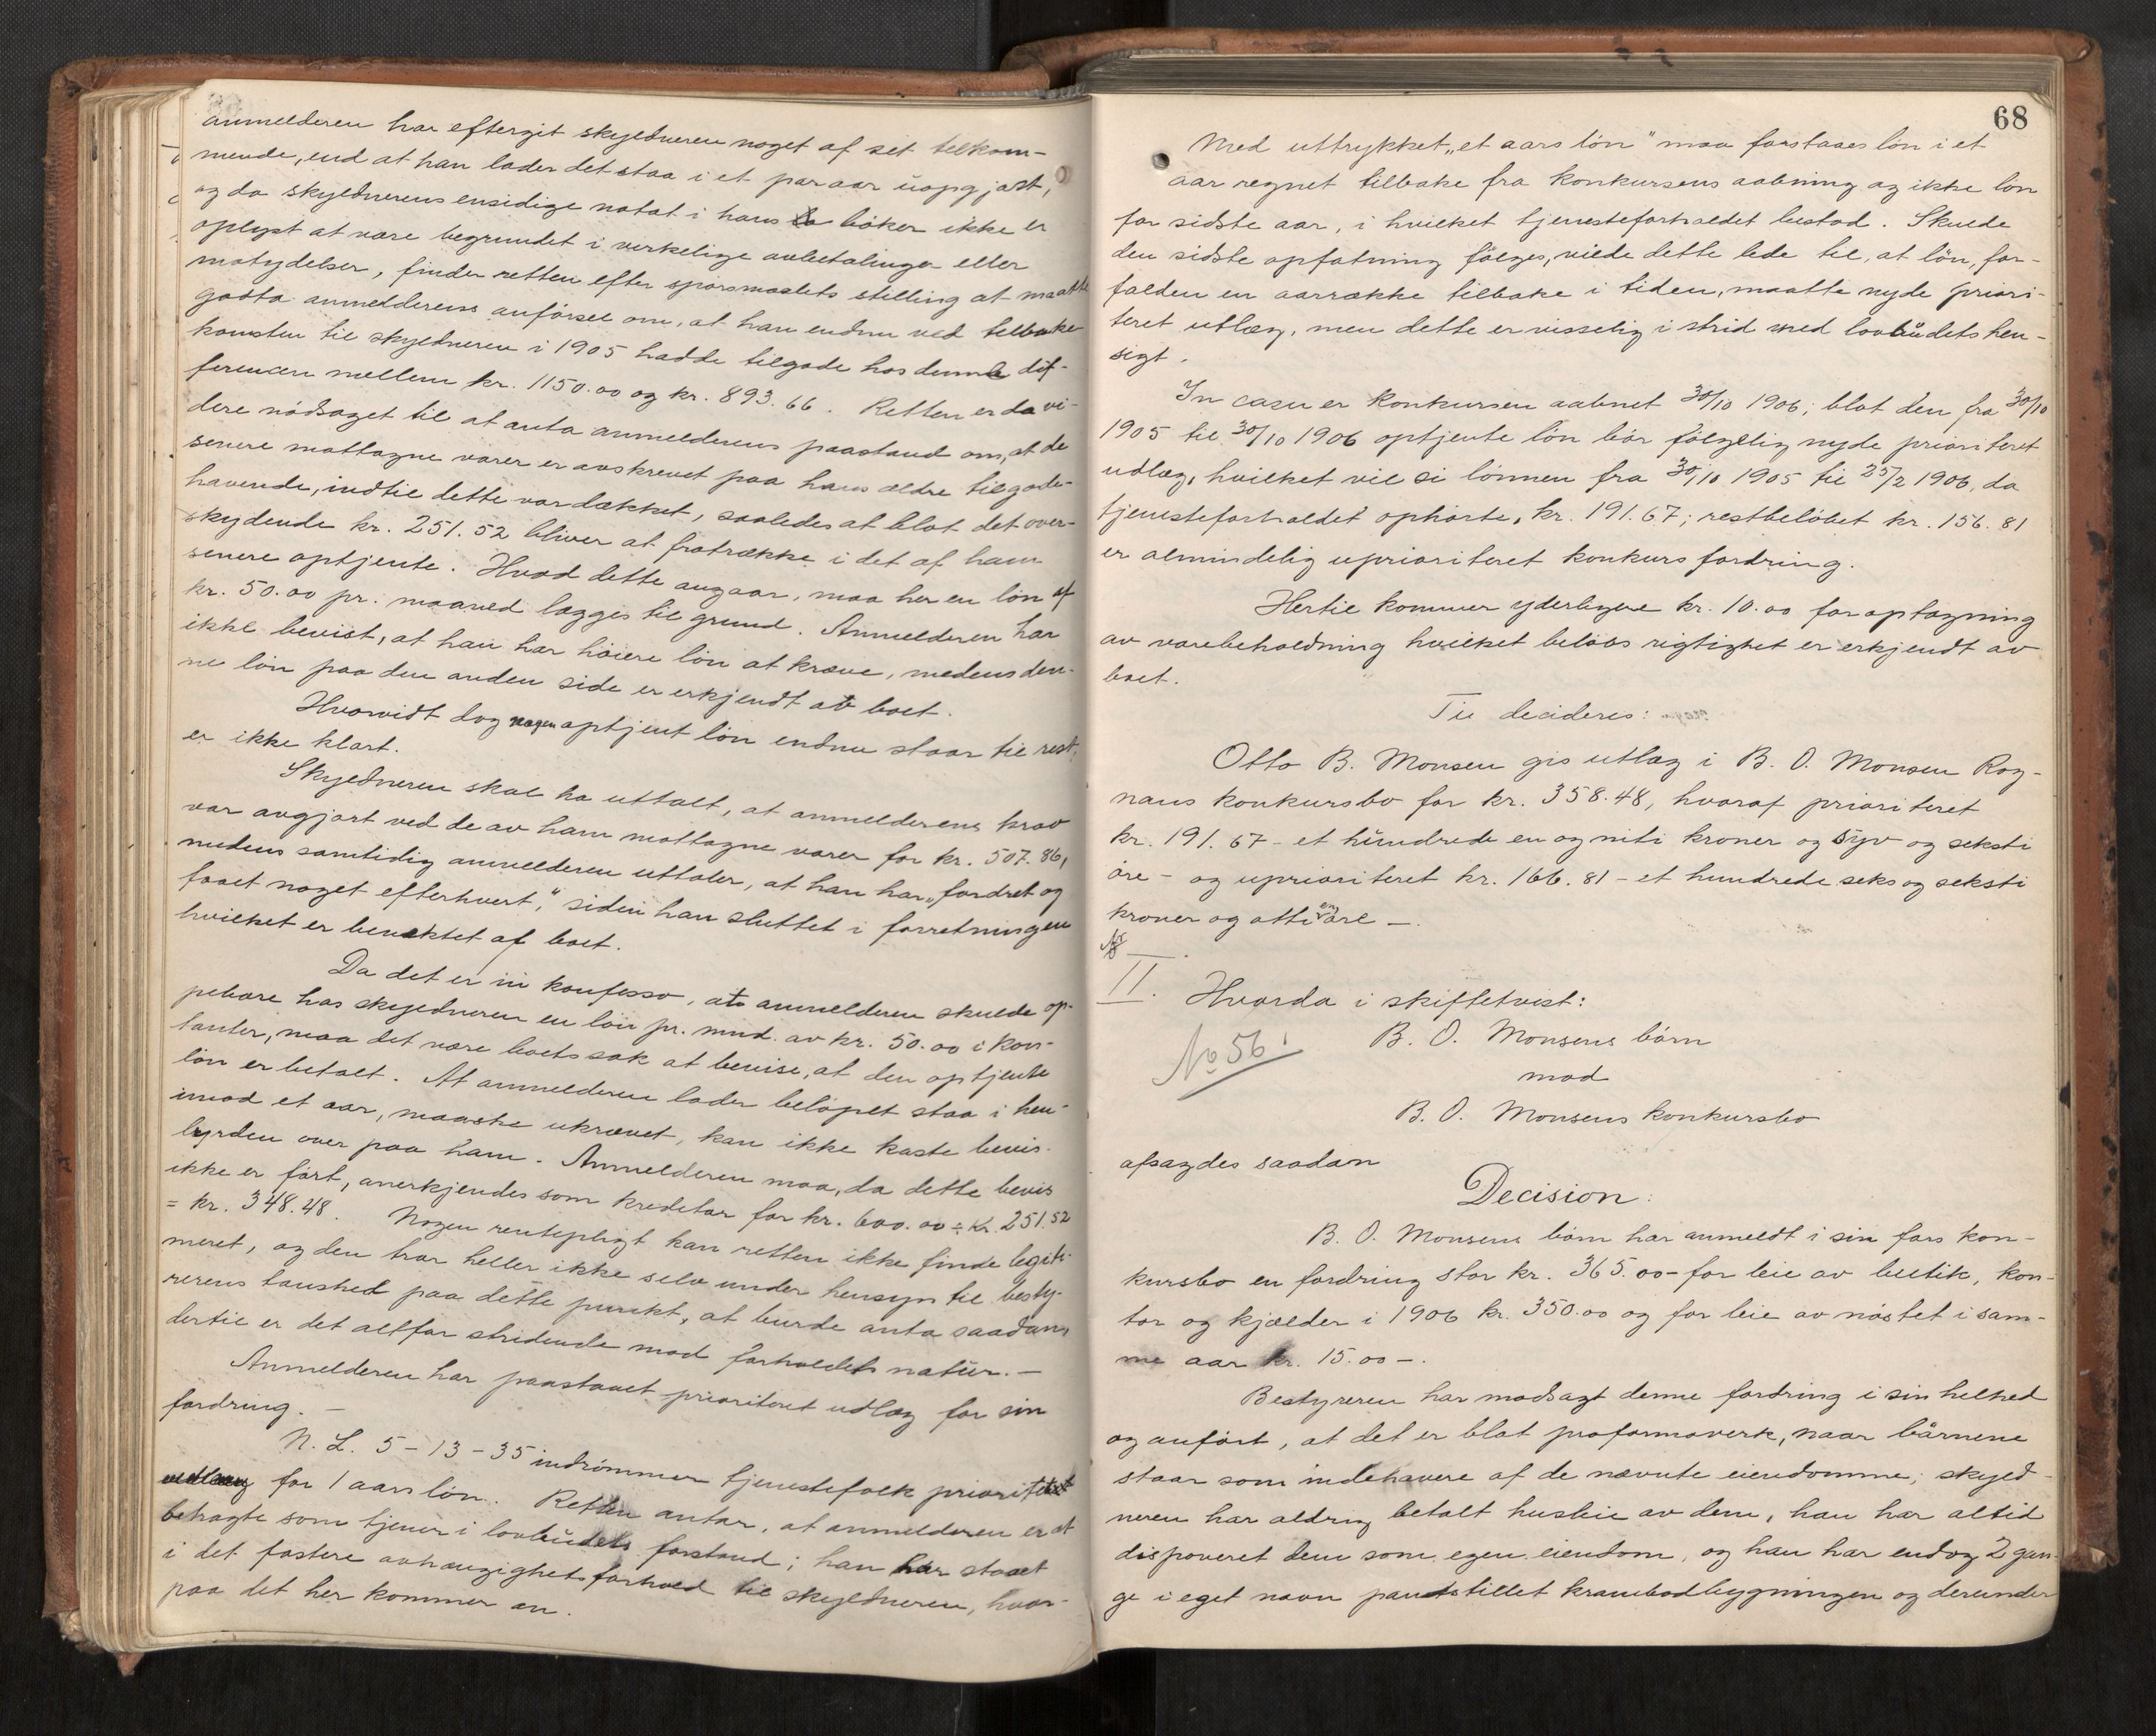 anmelderen har eftergit skyldneren noget af sit tilkom-
mende, end at han lader det staa i et par aar uopgjort,
og da skyldnerens ensidige notat i hans bøker ikke er
oplyst at være begrundet i virkelige avbetalinger eller
motydelser, finder retten efter spørsmaalets stilling at maatte
godta anmelderens anførsel om, at han endnu ved tilbake
komsten til skyldneren i 1905 hadde tilgode hos denne dif-
ferencen mellem kr. 1150.00 og kr. 893.66. Retten er da vi-
dere nødsaget til at anta anmelderens paastand om, at de
senere mottagne varer er avskrevet paa hans ældre tilgode-
havende, indtil dette var dækket, saaledes at blot det over-
skydende kr. 251.52 bliver at fratrække i det af ham
senere optjente. Hvad dette angaar, maa her en løn af
kr. 50.00 pr. maaned lægges til grund. Anmelderen har
ikke bevist, at han har høiere løn at kræve, medens den-
ne løn paa den anden side er erkjendt av boet.
Hvorvidt dog nogen optjent løn endnu staar til rest,
er ikke klart.
Skyldneren skal ha uttalt, at anmelderens krav
var avgjort ved de av ham mottagne varer for kr. 507.86,
medens samtidig anmelderen uttaler, at han har „fordret og
faaet noget efterhvert," siden han sluttet i forretningen
hvilket er benektet af boet.
Da det er in konfesso, at anmelderen skulde op-
pebære hos skyldneren en løn pr. mnd. av kr. 50.00 i kon-
tanter, maa det være boets sak at bevise, at den optjente
løn er betalt. At anmelderen lader beløpet staa i hen-
imod et aar, maaske ukrævet, kan ikke kaste bevis-
byrden over paa ham. Anmelderen maa, da dette bevis
ikke er ført, anerkjendes som kreditor for kr. 600.00 ÷ kr. 251.52
= kr. 348.48. Nogen rentepligt kan retten ikke finde legiti-
meret, og den tror heller ikke selv under hensyn til besty-
rerens taushed paa dette punkt, at burde anta saadan,
dertil er det altfor stridende mod forholdets natur. —
Anmelderen har paastaaet prioritert udlæg for sin
fordring. —
N. L. 5 - 13 - 35 indrømmer tjenestefolk prioritet
for 1 aars løn. Retten antar, at anmelderen er at
betragte som tjener i lovbudets forstand; han har staaet
i det fastere avhængighetsforhold til skyldneren, hvor-
paa det her kommer an.
68
Med uttrykket „et aars løn" maa forstaaes løn i et
aar regnet tilbake fra konkursens aabning og ikke løn
for sidste aar, i hvilket tjenesteforholdet bestod. Skulde
den sidste opfatning følges, vilde dette lede til, at løn, for-
falden en aarrække tilbake i tiden, maatte nyde priori-
teret utlæg, men dette er visselig i strid med lovbudets hen-
sigt.
In casu er konkursen aabnet 30/10 1906; blot den fra 30/10
1905 til 30/10 1906 optjente løn bør følgelig nyde prioriteret
udlæg, hvilket vil si lønnen fra 30/10 1905 til 25/2 1906, da
tjenesteforholdet ophørte, kr. 191.67; restbeløbet kr. 156.81
er almindelig uprioriteret konkursfordring.
Hertil kommer yderligere kr. 10.00 for optagning
av varebeholdning hvilket beløbs rigtighet er erkjendt av
boet.
Ti decideres:
Otto B. Monsen gis utlæg i B. O. Monsen Rog-
nans konkursbo for kr. 358.48, hvoraf prioriteret
kr. 191.67 - et hundrede en og niti kroner og syv og seksti
øre - og uprioriteret kr. 166.81 - et hundrede seks og seksti
kroner og otti en øre —.
II. Hvorda i skiftetvist:
No 56
B. O. Monsens børn
mod
B. O. Monsens konkursbo
afsagdes saadan
Decision:
B. O. Monsens børn har anmeldt i sin fars kon-
kursbo en fordring stor kr. 365.00 - for leie av butik, kon-
tor og kjælder i 1906 kr. 350.00 og for leie av nøstet i sam-
me aar kr. 15.00 —.
Bestyreren har modsagt denne fordring i sin helhed
og anført, at det er blot proformaverk, naar børnene
staar som indehavere af de nævnte eiendomme; skyld-
neren har aldrig betalt husleie av dem, han har altid
disponeret dem som egen eiendom, og han har endog 2 gan-
ge i eget navn pantstillet krambodbygningen og derunder